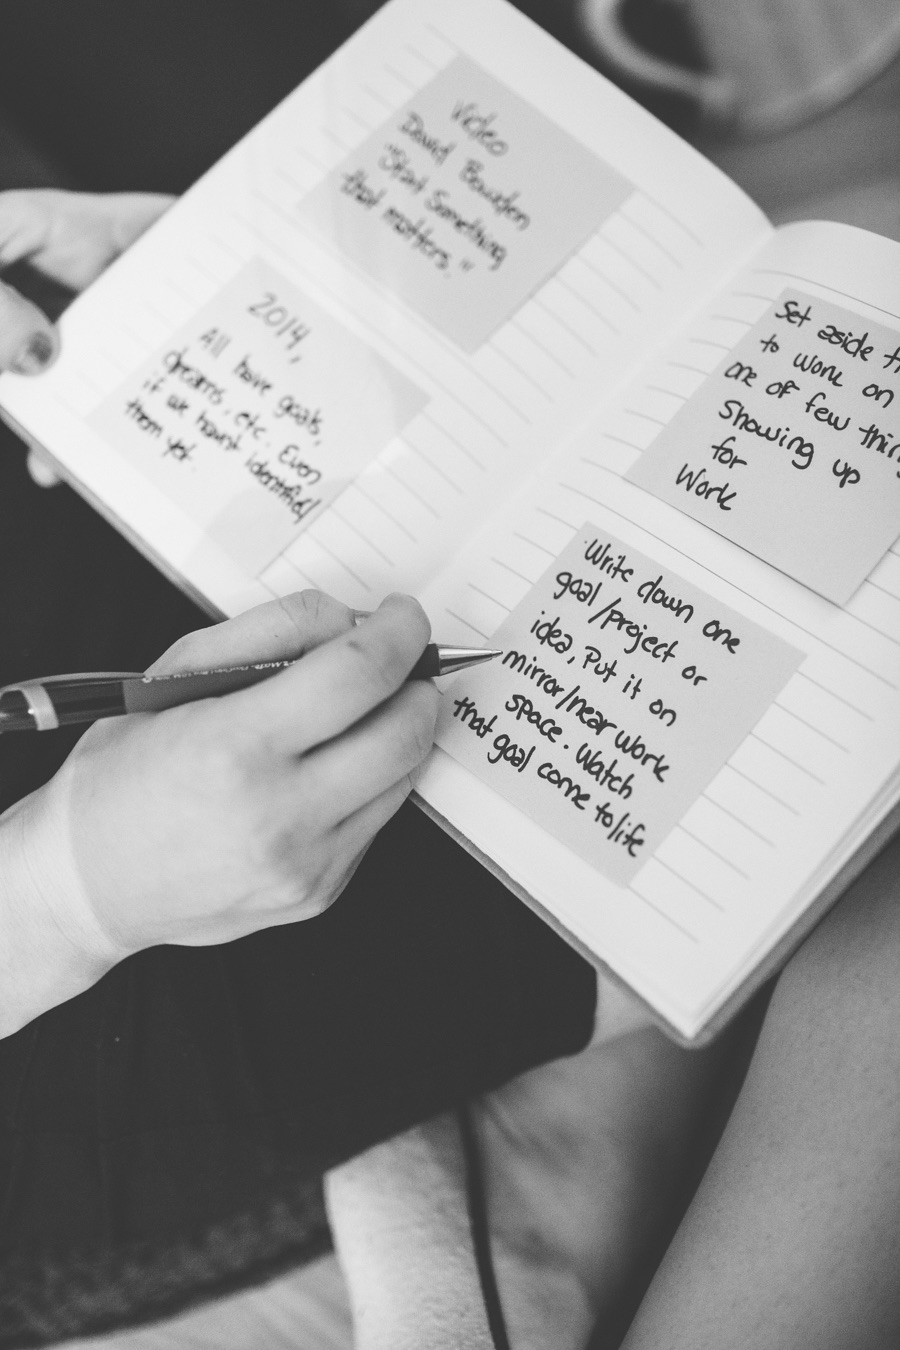 Video
David Bowden
"Start Something
that matters."
2014,
All have goals,
dreams, etc. Even
if we havnt identified
them yet.
Set aside
to work on
one of few
Showing up
for
Work
Write down one
goal/project or
idea, Put it on
mirror/near work
space. Watch
that goal come to life